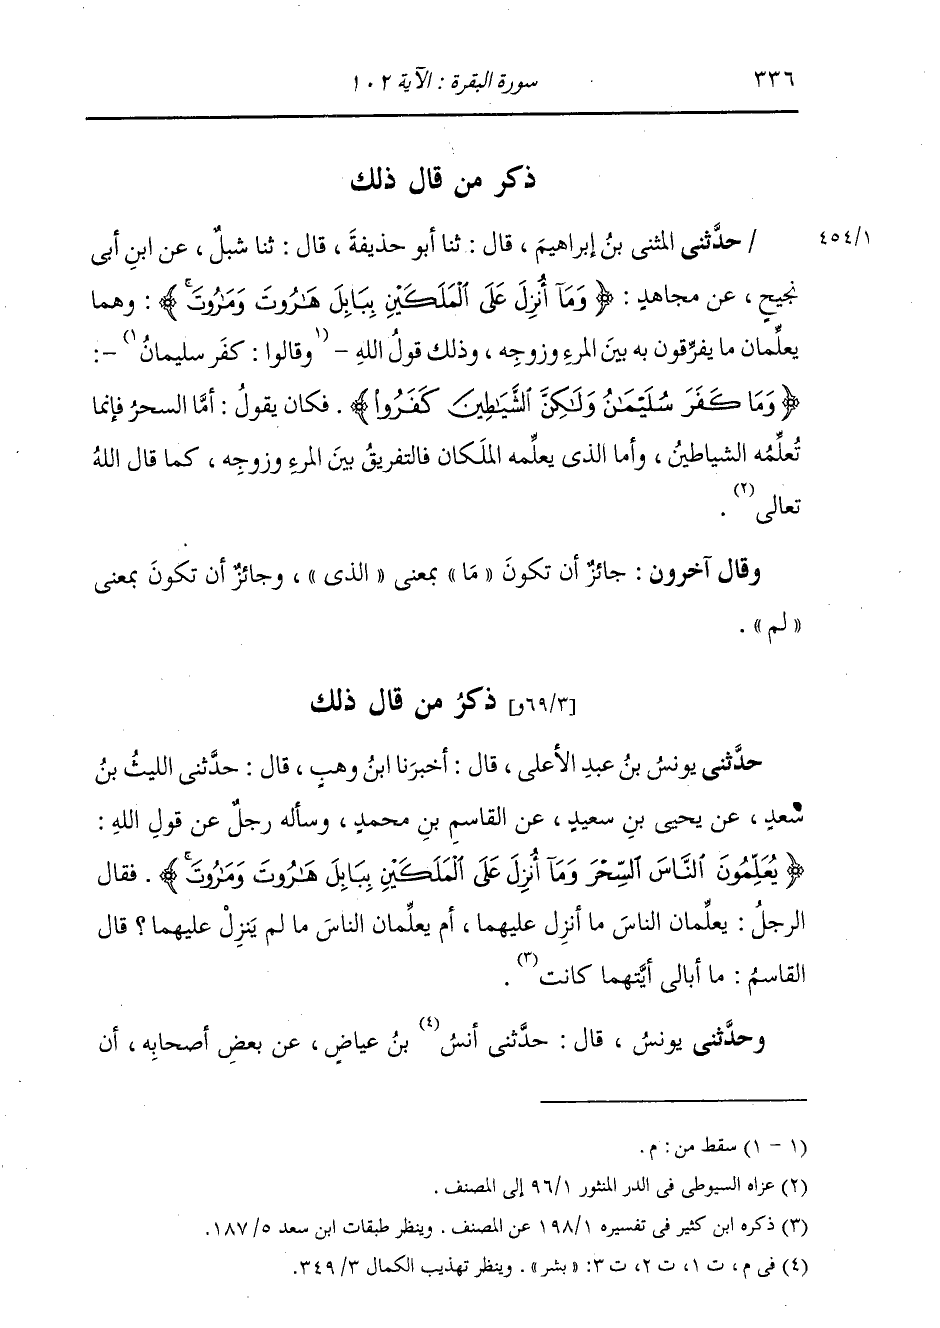 ٣٣٦ سورة البقرة : الآية ١٠٢
ذكر من قال ذلك
٤٥٤/١ / حدَّثنى المثنى بنُ إبراهيمَ ، قال : ثنا أبو حذيفةَ ، قال : ثنا شبلٌ ، عن ابنِ أبى
نجيحٍ ، عن مجاهدٍ : ﴿ وَمَآ أُنزِلَ عَلَى ٱلْمَلَكَيْنِ بِبَابِلَ هَٰرُوتَ وَمَٰرُوتَۚ ﴾ : وهما
يعلِّمان ما يفرِّقون به بينَ المرءِ وزوجِه ، وذلك قولُ اللهِ - (١) وقالوا : كفَر سليمانُ (١) - :
﴿ وَمَا كَفَرَ سُلَيْمَٰنُ وَلَٰكِنَّ ٱلشَّيَٰطِينَ كَفَرُوا۟ ﴾ . فكان يقولُ : أمَّا السحرُ فإنما
تُعلِّمُه الشياطينُ ، وأما الذى يعلِّمه الملَكان فالتفريقُ بينَ المرءِ وزوجِه ، كما قال اللهُ
تعالى (٢) .
وقال آخرون : جائزٌ أن تكونَ « مَا » بمعنى « الذى » ، وجائزٌ أن تكونَ بمعنى
« لم » .
[٦٩/٣و] ذكرُ من قال ذلك
حدَّثنى يونسُ بنُ عبدِ الأعلى ، قال : أخبرَنا ابنُ وهبٍ ، قال : حدَّثنى الليثُ بنُ
سعدٍ ، عن يحيى بنِ سعيدٍ ، عن القاسمِ بنِ محمدٍ ، وسأله رجلٌ عن قولِ اللهِ :
﴿ يُعَلِّمُونَ ٱلنَّاسَ ٱلسِّحْرَ وَمَآ أُنزِلَ عَلَى ٱلْمَلَكَيْنِ بِبَابِلَ هَٰرُوتَ وَمَٰرُوتَۚ ﴾ . فقال
الرجلُ : يعلِّمان الناسَ ما أنزِل عليهما ، أم يعلِّمان الناسَ ما لم يَنزِلْ عليهما ؟ قال
القاسمُ : ما أبالى أيَّتهما كانت (٣) .
وحدَّثنى يونسُ ، قال : حدَّثنى أنسُ (٤) بنُ عياضٍ ، عن بعضِ أصحابِه ، أن
(١ - ١) سقط من : م .
(٢) عزاه السيوطى فى الدر المنثور ٩٦/١ إلى المصنف .
(٣) ذكره ابن كثير فى تفسيره ١٩٨/١ عن المصنف . وينظر طبقات ابن سعد ١٨٧/٥.
(٤) فى م ، ت ١، ت ٢، ت ٣: « بشر » . وينظر تهذيب الكمال ٣٤٩/٣.